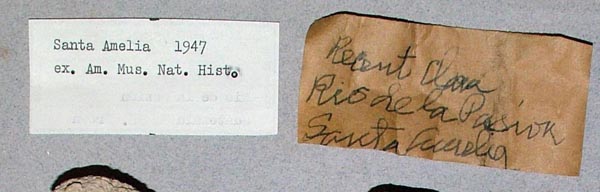 Santa Amelia 1947
ex. Am. Mus. Nat. Hist.
Recent
Rio de la Pasion
Santa Amelia